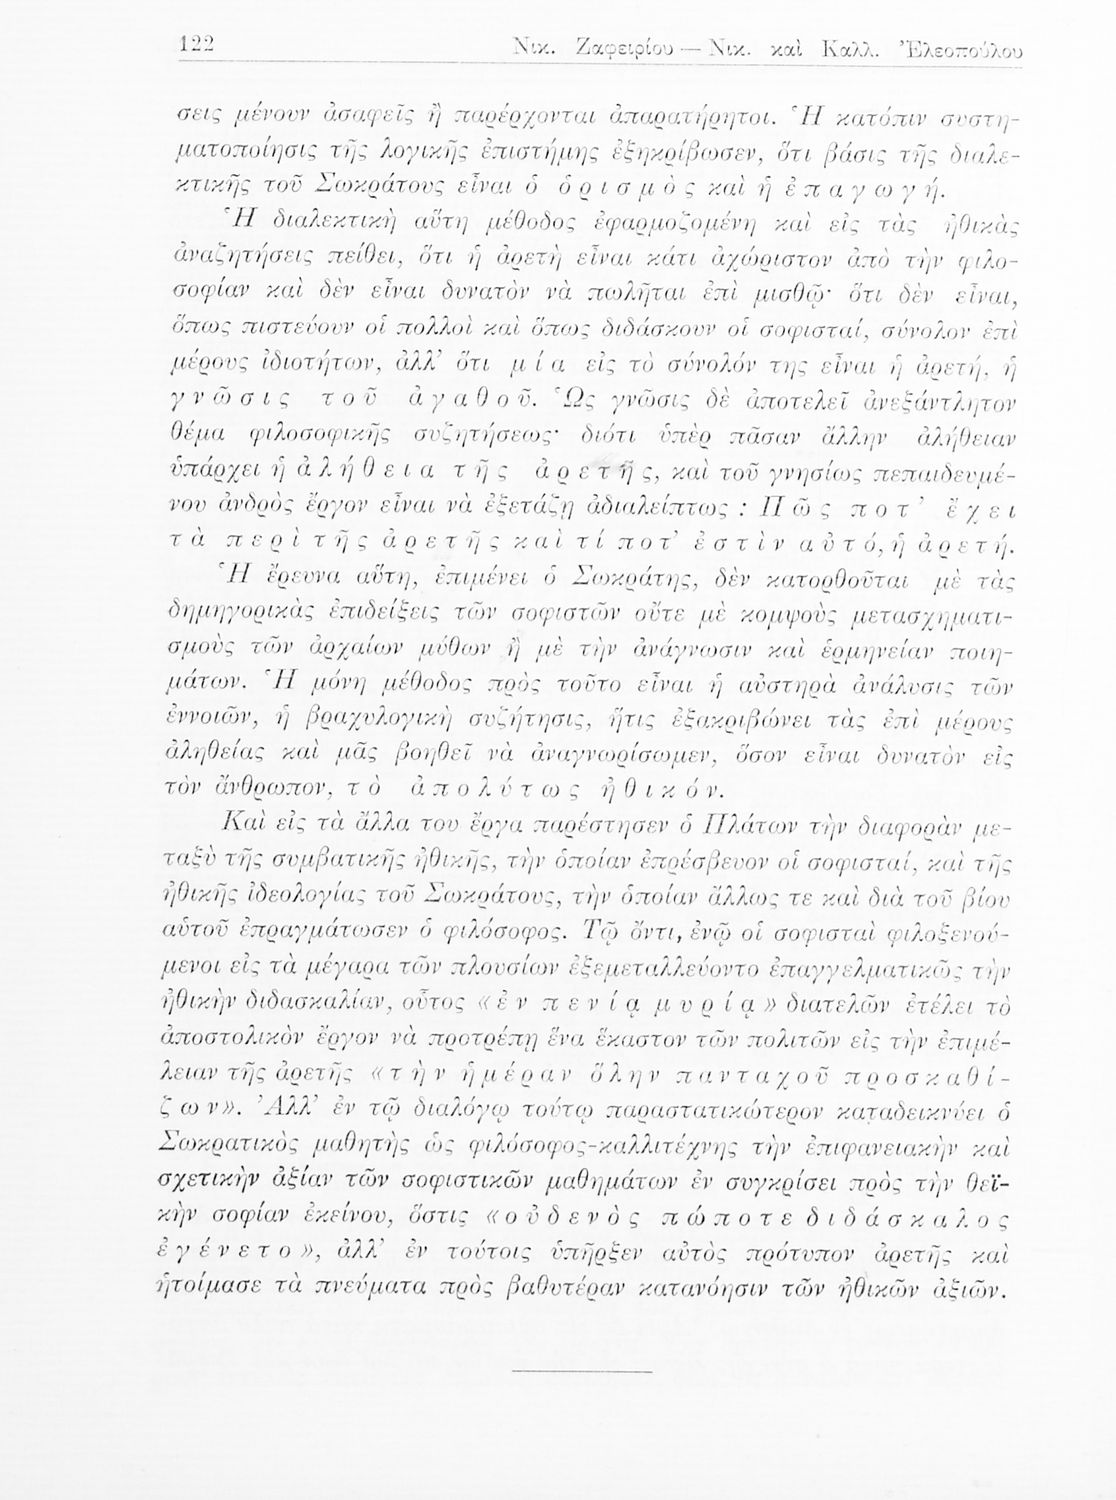 122 Νικ. Ζαφειρίου — Νικ. καὶ Καλλ. Ἐλεοπούλου
σεις μένουν ἀσαφεῖς ἢ παρέρχονται ἀπαρατήρητοι. Ἡ κατόπιν συστη-
ματοποίησις τῆς λογικῆς ἐπιστήμης ἐξηκρίβωσεν, ὅτι βάσις τῆς διαλε-
κτικῆς τοῦ Σωκράτους εἶναι ὁ ὁ ρ ι σ μ ὸ ς καὶ ἡ ἐ π α γ ω γ ή.
Ἡ διαλεκτικὴ αὕτη μέθοδος ἐφαρμοζομένη καὶ εἰς τὰς ἠθικὰς
ἀναζητήσεις πείθει, ὅτι ἡ ἀρετὴ εἶναι κάτι ἀχώριστον ἀπὸ τὴν φιλο-
σοφίαν καὶ δὲν εἶναι δυνατὸν νὰ πωλῆται ἐπὶ μισθῷ· ὅτι δὲν εἶναι,
ὅπως πιστεύουν οἱ πολλοὶ καὶ ὅπως διδάσκουν οἱ σοφισταί, σύνολον ἐπὶ
μέρους ἰδιοτήτων, ἀλλ’ ὅτι μ ί α εἰς τὸ σύνολόν της εἶναι ἡ ἀρετή, ἡ
γ ν ῶ σ ι ς τ ο ῦ ἀ γ α θ ο ῦ. Ὡς γνῶσις δὲ ἀποτελεῖ ἀνεξάντλητον
θέμα φιλοσοφικῆς συζητήσεως· διότι ὑπὲρ πᾶσαν ἄλλην ἀλήθειαν
ὑπάρχει ἡ ἀ λ ή θ ε ι α τ ῆ ς ἀ ρ ε τ ῆ ς, καὶ τοῦ γνησίως πεπαιδευμέ-
νου ἀνδρὸς ἔργον εἶναι νὰ ἐξετάζῃ ἀδιαλείπτως : Π ῶ ς π ο τ ’ ἔ χ ε ι
τ ὰ π ε ρ ὶ τ ῆ ς ἀ ρ ε τ ῆ ς κ α ὶ τ ί π ο τ’ ἐ σ τ ὶ ν α ὐ τ ό, ἡ ἀ ρ ε τ ή.
Ἡ ἔρευνα αὕτη, ἐπιμένει ὁ Σωκράτης, δὲν κατορθοῦται μὲ τὰς
δημηγορικὰς ἐπιδείξεις τῶν σοφιστῶν οὔτε μὲ κομψοὺς μετασχηματι-
σμοὺς τῶν ἀρχαίων μύθων ἢ μὲ τὴν ἀνάγνωσιν καὶ ἑρμηνείαν ποιη-
μάτων. Ἡ μόνη μέθοδος πρὸς τοῦτο εἶναι ἡ αὐστηρὰ ἀνάλυσις τῶν
ἐννοιῶν, ἡ βραχυλογικὴ συζήτησις, ἥτις ἐξακριβώνει τὰς ἐπὶ μέρους
ἀληθείας καὶ μᾶς βοηθεῖ νὰ ἀναγνωρίσωμεν, ὅσον εἶναι δυνατὸν εἰς
τὸν ἄνθρωπον, τ ὸ ἀ π ο λ ύ τ ω ς ἠ θ ι κ ό ν.
Καὶ εἰς τὰ ἄλλα του ἔργα παρέστησεν ὁ Πλάτων τὴν διαφορὰν με-
ταξὺ τῆς συμβατικῆς ἠθικῆς, τὴν ὁποίαν ἐπρέσβευον οἱ σοφισταί, καὶ τῆς
ἠθικῆς ἰδεολογίας τοῦ Σωκράτους, τὴν ὁποίαν ἄλλως τε καὶ διὰ τοῦ βίου
αὑτοῦ ἐπραγμάτωσεν ὁ φιλόσοφος. Τῷ ὄντι, ἐνῷ οἱ σοφισταὶ φιλοξενού-
μενοι εἰς τὰ μέγαρα τῶν πλουσίων ἐξεμεταλλεύοντο ἐπαγγελματικῶς τὴν
ἠθικὴν διδασκαλίαν, οὗτος «ἐ ν π ε ν ί ᾳ μ υ ρ ί ᾳ» διατελῶν ἐτέλει τὸ
ἀποστολικὸν ἔργον νὰ προτρέπῃ ἕνα ἕκαστον τῶν πολιτῶν εἰς τὴν ἐπιμέ-
λειαν τῆς ἀρετῆς «τ ὴ ν ἡ μ έ ρ α ν ὅ λ η ν π α ν τ α χ ο ῦ π ρ ο σ κ α θ ί -
ζ ω ν». Ἀλλ’ ἐν τῷ διαλόγῳ τούτῳ παραστατικώτερον καταδεικνύει ὁ
Σωκρατικὸς μαθητὴς ὡς φιλόσοφος-καλλιτέχνης τὴν ἐπιφανειακὴν καὶ
σχετικὴν ἀξίαν τῶν σοφιστικῶν μαθημάτων ἐν συγκρίσει πρὸς τὴν θεϊ-
κὴν σοφίαν ἐκείνου, ὅστις «ο ὐ δ ε ν ὸ ς π ώ π ο τ ε δ ι δ ά σ κ α λ ο ς
ἐ γ έ ν ε τ ο», ἀλλ’ ἐν τούτοις ὑπῆρξεν αὐτὸς πρότυπον ἀρετῆς καὶ
ἡτοίμασε τὰ πνεύματα πρὸς βαθυτέραν κατανόησιν τῶν ἠθικῶν ἀξιῶν.